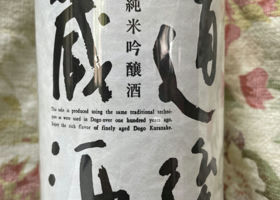 道後
蔵酒
純米吟醸酒
This sake is produced using the same traditional techni-
ques as were used in Dogo over one hundred years ago.
Enjoy the rich flavor of finely aged Dogo Kurazake.